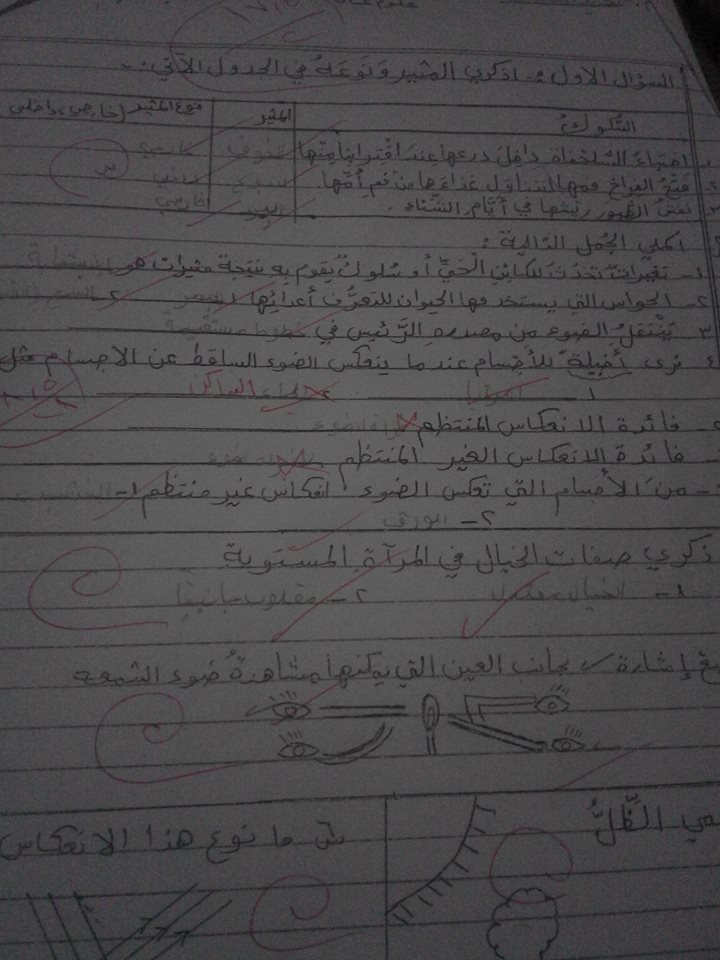 السؤال الأول : اذكري المثير ونوعه في الجدول الآتي :
السلوك المثير نوع المثير (خارجي، داخلي)
١- اختباء السلحفاة داخل درعها عند اقترابنا منها الخوف خارجي
٢- فتح الفراخ فمها لتناول غذاءها من فم أمها
٣- نفش الطيور ريشها في أيام الشتاء البرد خارجي
اكملي الجمل التالية :
١- تغيرات تحدث للكائن الحي أو سلوك يقوم به نتيجة مثيرات هو الاستجابة
٢- الحواس التي يستخدمها الحيوان للتعرف أعدائها ١ البصر ٢- السمع
٣- ينتقل الضوء من مصدره الرئيس في خطوط مستقيمة
٤- نرى أخيلة للأجسام عندما ينعكس الضوء الساقط عن الاجسام مثل
١- المرايا ٢- الماء الساكن
فائدة الانعكاس المنتظم
فائدة الانعكاس الغير المنتظم
من الأجسام التي تعكس الضوء انعكاس غير منتظم ١- الخشب
٢- الورق
ذكري صفات الخيال في المرآة المستوية
١- الخيال معتدل ٢- مقلوب جانبيا
إشارة ✓ بجانب العين التي يمكنها مشاهدة ضوء الشمعه
الظل
ما نوع هذا الانعكاس